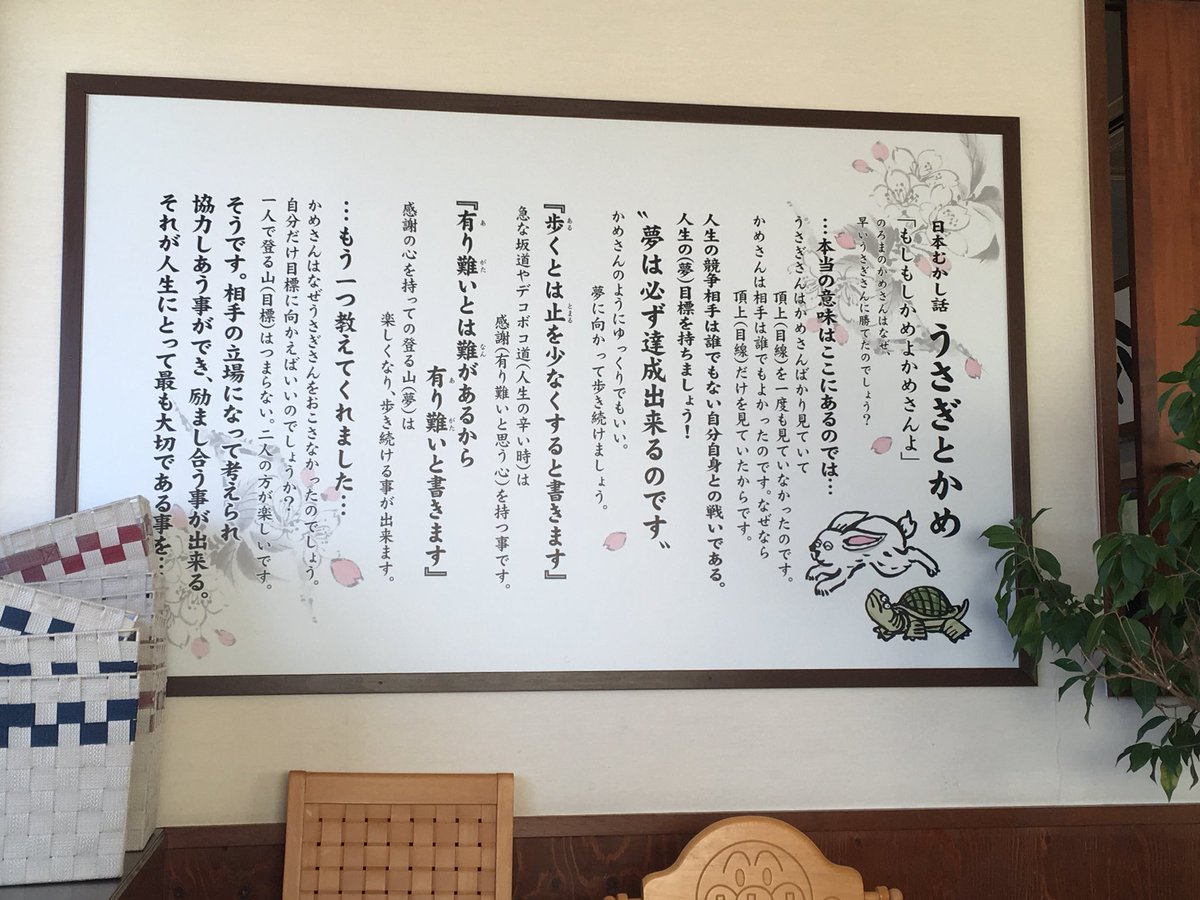 日本むかし話 うさぎとかめ
『もしもしかめよかめさんよ』
のろまのかめさんはなぜ、
早いうさぎさんに勝てたのでしょう?
…本当の意味はここにあるのでは…
うさぎさんはかめさんばかり見ていて
頂上(目線)を一度も見ていなかったのです。
かめさんは相手は誰でもよかったのです。なぜなら
頂上(目線)だけを見ていたからです。
人生の競争相手は誰でもない自分自身との戦いである。
人生の(夢)目標を持ちましょう!
〝夢は必ず達成出来るのです〟
かめさんのようにゆっくりでもいい。
夢に向かって歩き続けましょう。
『歩くとは止を少なくすると書きます』
急な坂道やデコボコ道(人生の辛い時)は
感謝(有り難いと思う心)を持つ事です。
『有り難いとは難があるから
有り難いと書きます』
感謝の心を持っての登る山(夢)は
楽しくなり、歩き続ける事が出来ます。
…もう一つ教えてくれました…
かめさんはなぜうさぎさんをおこさなかったのでしょう。
自分だけ目標に向かえばいいのでしょうか?
一人で登る山(目標)はつまらない。二人の方が楽しいです。
そうです。相手の立場になって考えられ
協力しあう事ができ、励まし合う事が出来る。
それが人生にとって最も大切である事を…